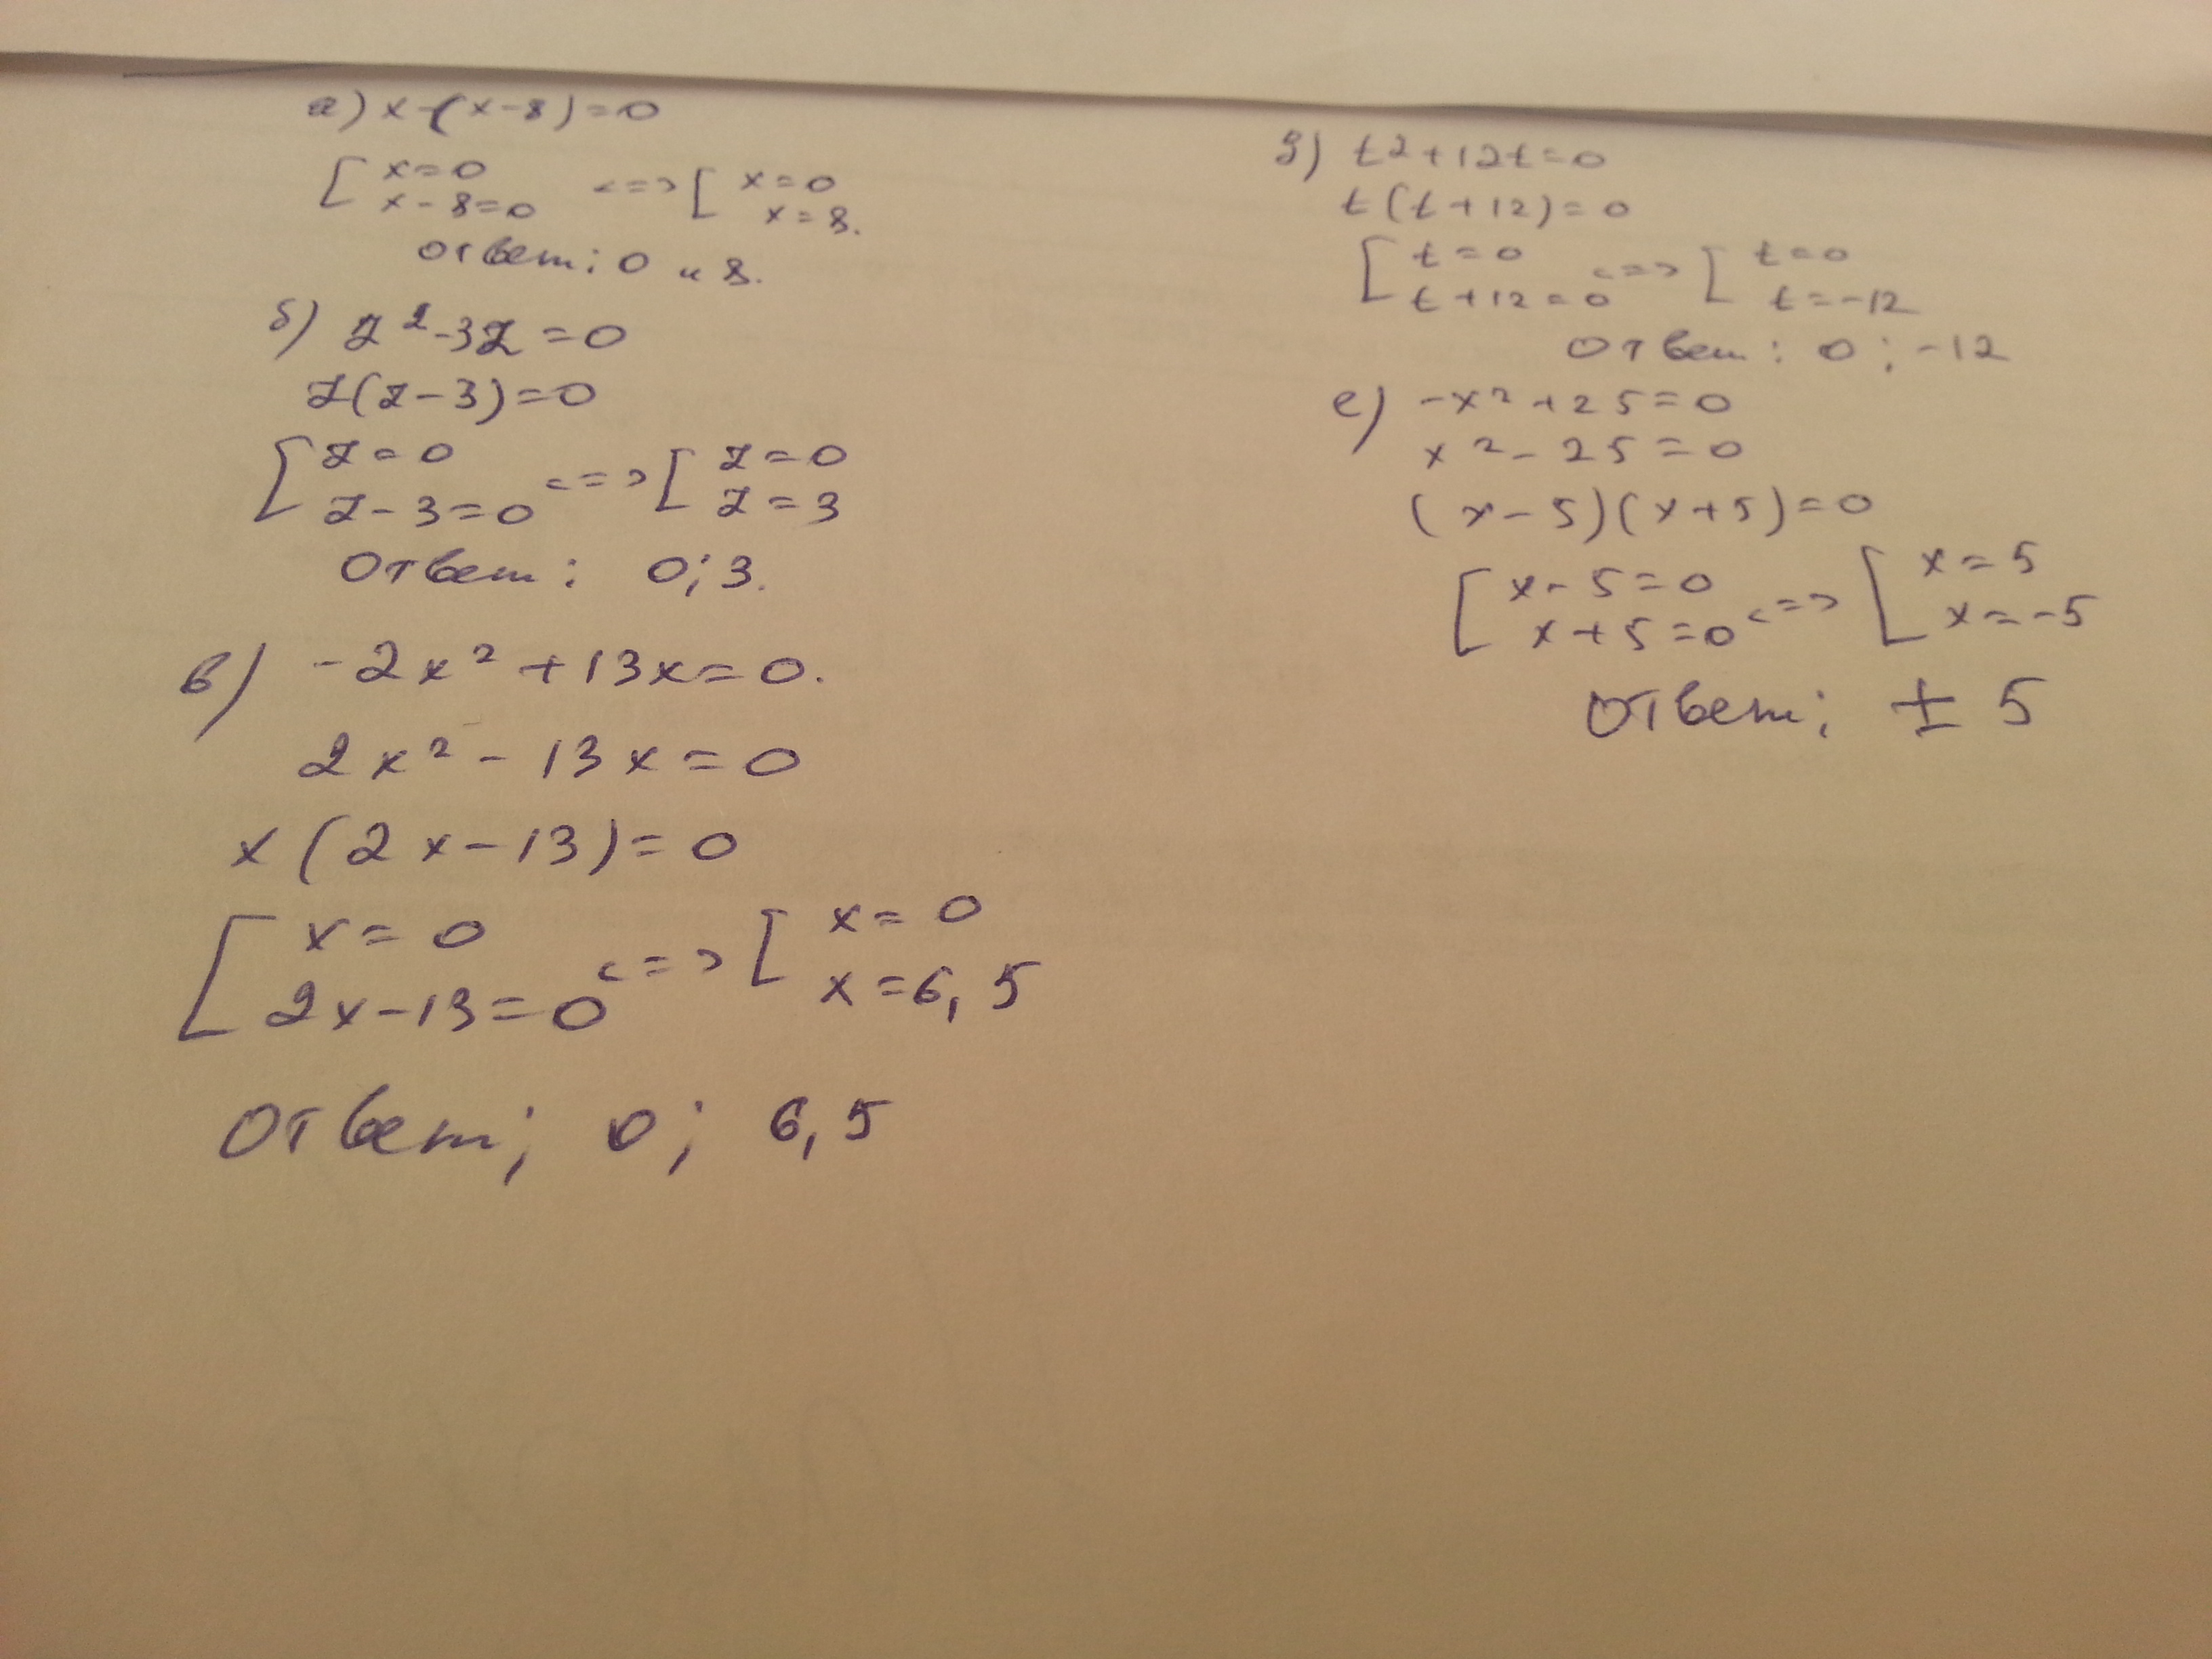 а) x(x-8)=0
[ x=0
x-8=0 <=> [ x=0
x=8.
Ответ: 0 и 8.
б) z²-3z=0
z(z-3)=0
[ z=0
z-3=0 <=> [ z=0
z=3
Ответ: 0; 3.
в) -2x²+13x=0.
2x²-13x=0
x(2x-13)=0
[ x=0
2x-13=0 <=> [ x=0
x=6,5
Ответ; 0; 6,5
д) t²+12t=0
t(t+12)=0
[ t=0
t+12=0 <=> [ t=0
t=-12
Ответ: 0; -12
е) -x²+25=0
x²-25=0
(x-5)(x+5)=0
[ x-5=0
x+5=0 <=> [ x=5
x=-5
Ответ; ±5